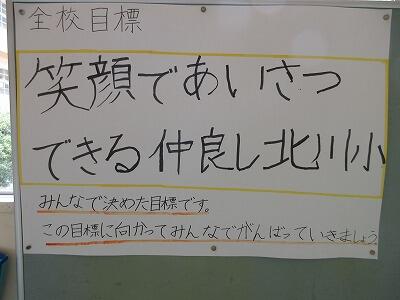 全校目標
笑顔であいさつ
できる仲良し北川小
みんなで決めた目標です。
この目標に向かってみんなでがんばっていきましょう